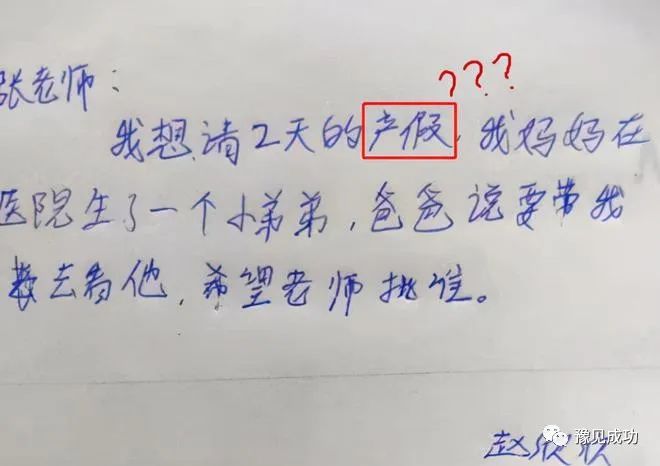 张老师：
???
我想请2天的产假，我妈妈在
医院生了一个小弟弟，爸爸说要带我
去看他，希望老师批准。
赵欣欣
豫见成功